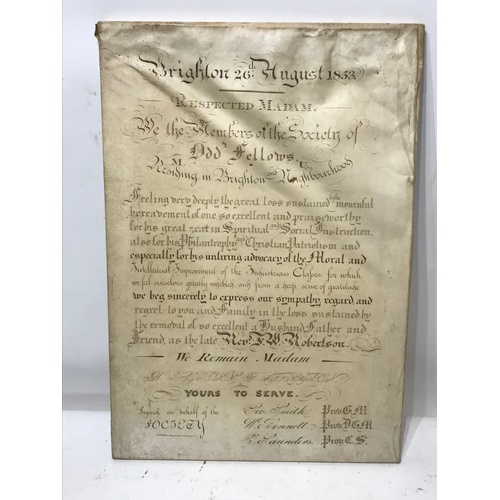 Brighton 26th August 1853
Respected Madam.
We the Members of the Society of
Odd Fellows
M. U.
Residing in Brighton and Neighbourhood
Feeling very deeply the great loss sustained by the mournful
bereavement of one so excellent and praiseworthy
for his great zeal in Spiritual and Social Instruction
also for his Philanthrophy and Christian Patriotism and
especially for his untiring advocacy of the Moral and
Intellectual Improvement of the Industrious Classes, for which
we feel ourselves greatly indebted, and from a deep sense of gratitude
we beg sincerely to express our sympathy, regard and
regret, to you and Family in the loss sustained by
the removal of so excellent a Husband Father and
Friend, as the late Revd. F. W. Robertson.
We Remain Madam
YOURS TO SERVE.
Signed on behalf of the
SOCIETY
Geo. Smith Prov. G.M.
W. Gennett Prov. D.G.M.
Saunders Prov. C.S.